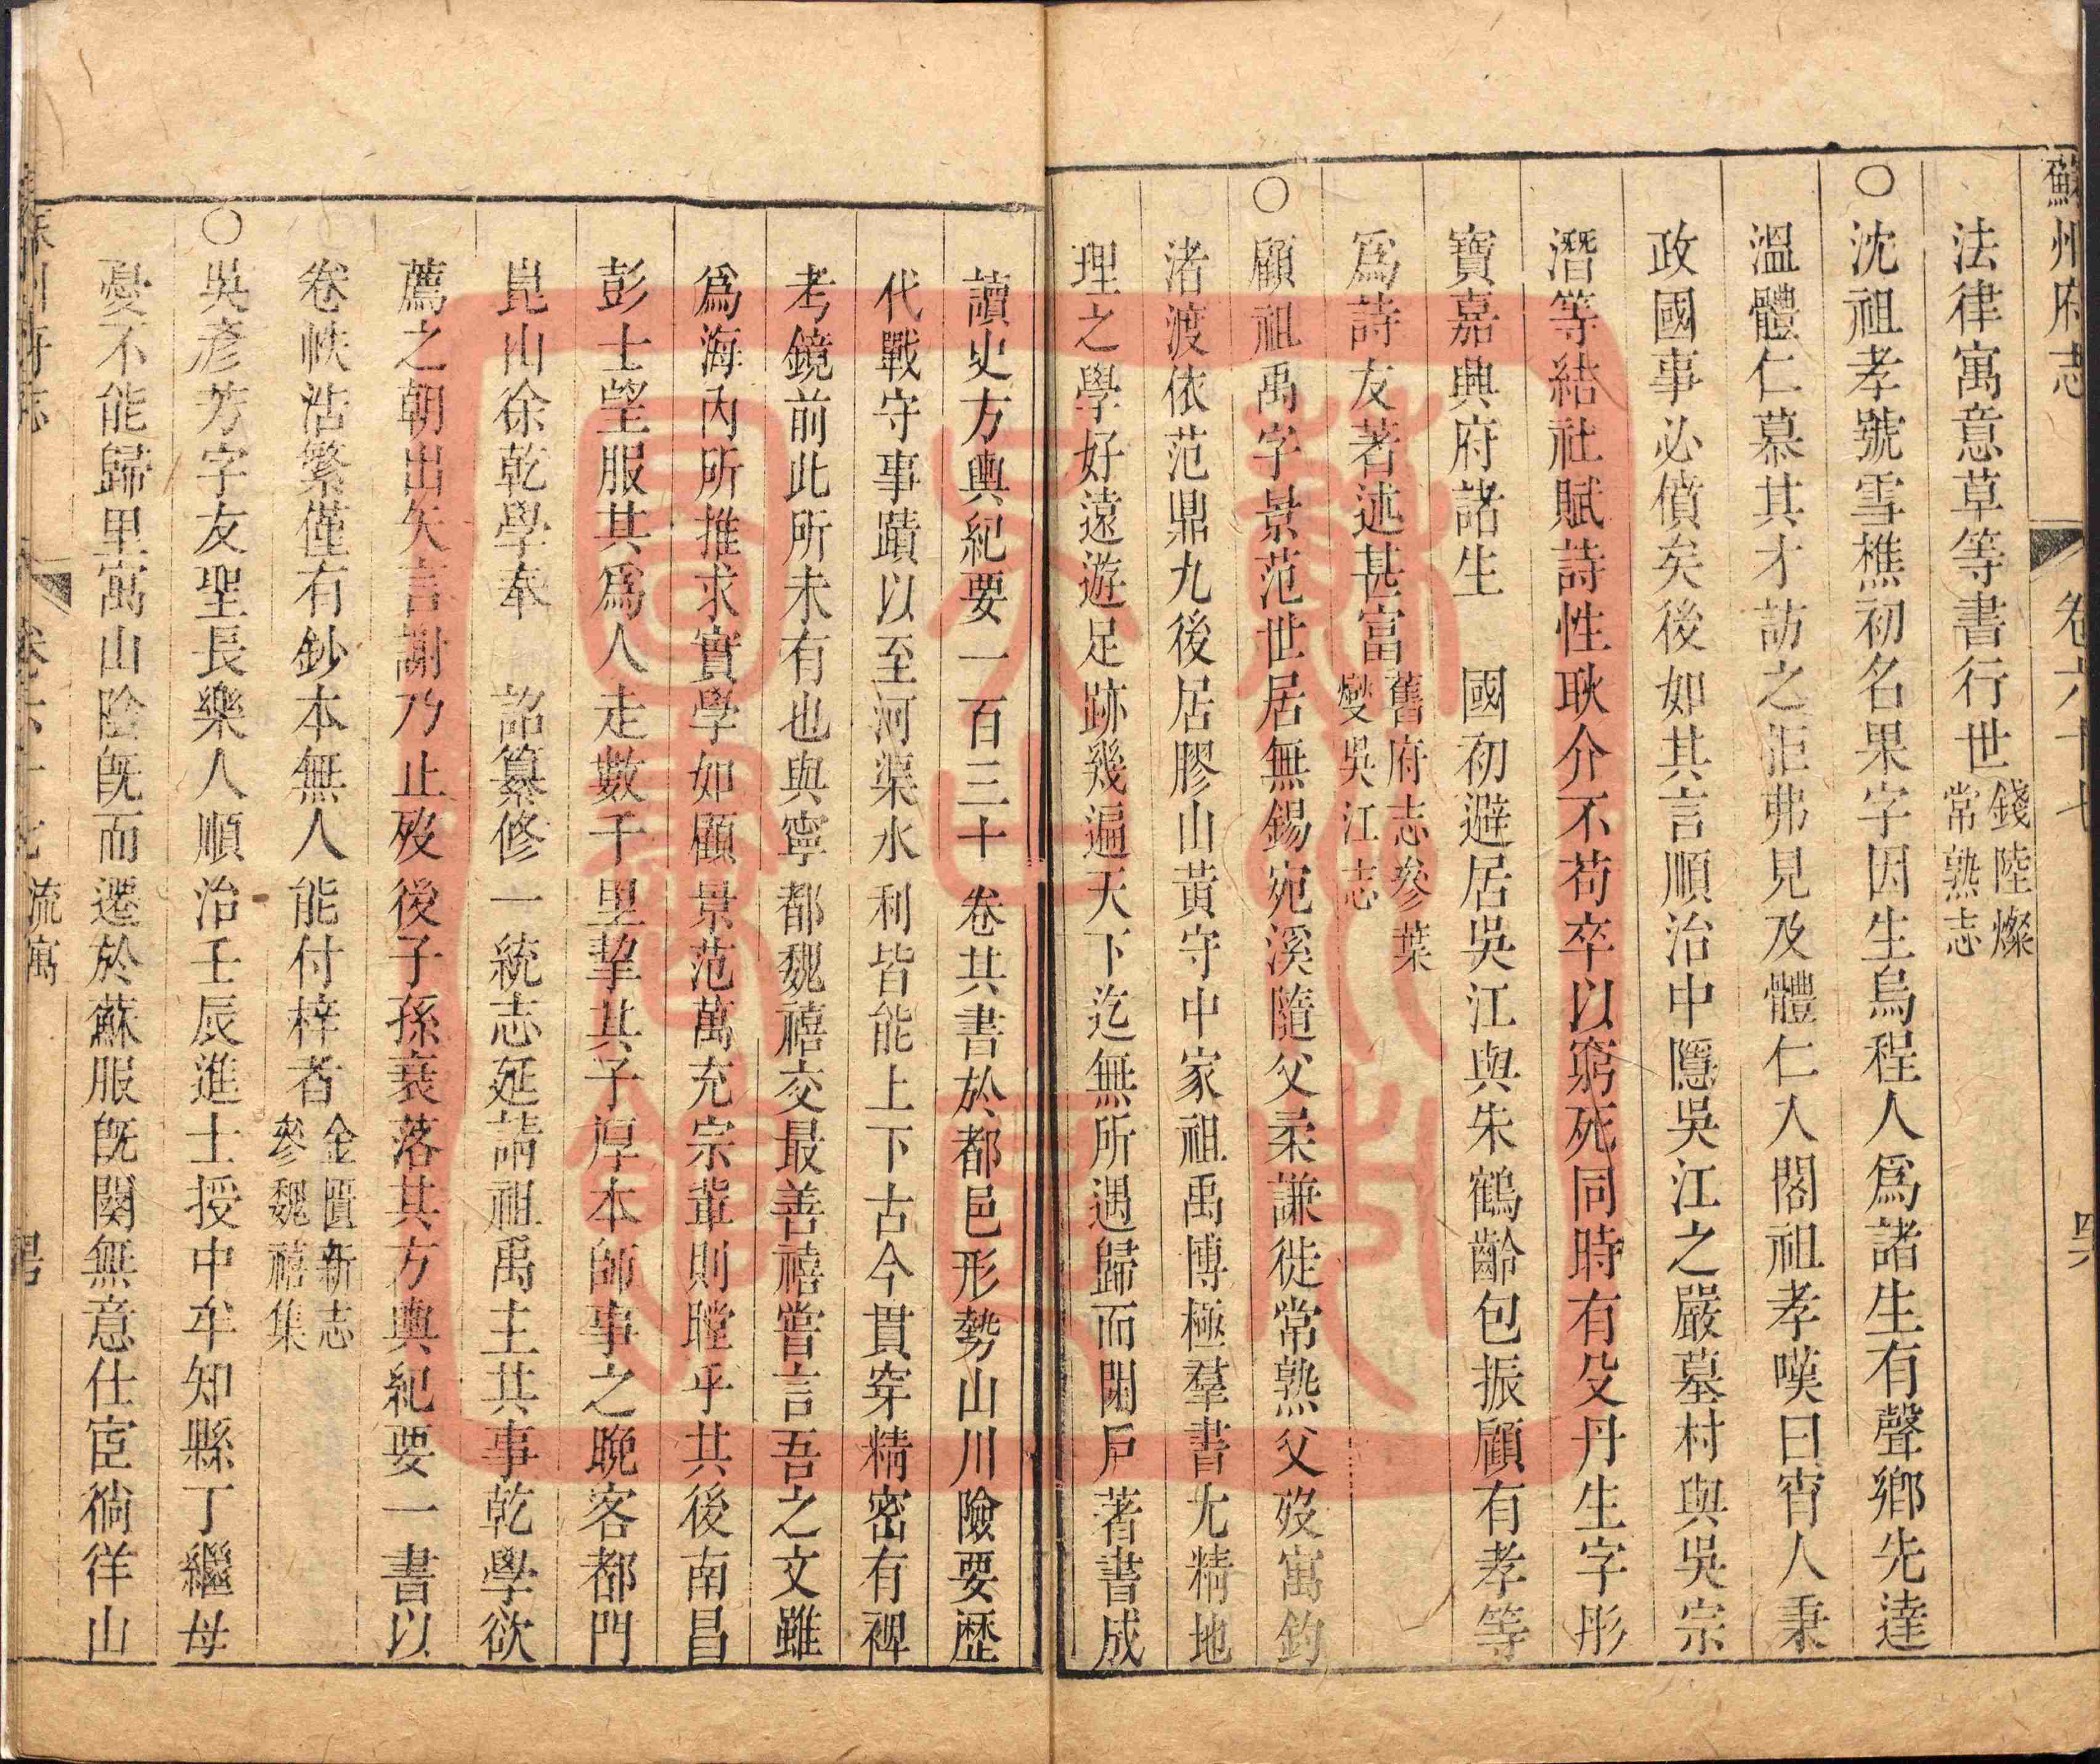 蘇州府志 卷六十七
法律寓意草等書行世錢陸燦常熟志
○沈祖孝號雪樵初名果字因生烏程人爲諸生有聲鄉先達
溫體仁慕其才訪之距弗見及體仁入閣祖孝嘆曰宵人秉
政國事必僨矣後如其言順治中隱吳江之嚴墓村與吳宗
潛等結社賦詩性耿介不苟卒以窮死同時有殳丹生字彤
寶嘉興府諸生 國初避居吳江與朱鶴齡包振顧有孝等
爲詩友著述甚富舊府志參葉燮吳江志
○顧祖禹字景范世居無錫宛溪隨父柔謙徙常熟父歿寓釣
渚渡依范鼎九後居膠山黃守中家祖禹博極羣書尤精地
理之學好遠遊足跡幾遍天下迄無所遇歸而閉戸著書成
讀史方輿紀要一百三十卷其書於都邑形勢山川險要歷
代戰守事蹟以至河渠水利皆能上下古今貫穿精密有裨
考鏡前此所未有也與寧都魏禧交最善禧嘗言吾之文雖
爲海內所推求實學如顧景范萬充宗輩則瞠乎其後南昌
彭士望服其爲人走數千里挈其子厚本師事之晚客都門
崑山徐乾學奉 詔纂修一統志延請祖禹主其事乾學欲
薦之朝出矢言謝乃止歿後子孫衰落其方輿紀要一書以
卷帙浩繁僅有鈔本無人能付梓者金匱新志參魏禧集
○吳彥芳字友聖長樂人順治壬辰進士授中牟知縣丁繼母
憂不能歸里寓山陰旣而遷於蘇服旣闋無意仕宦徜徉山
流寓